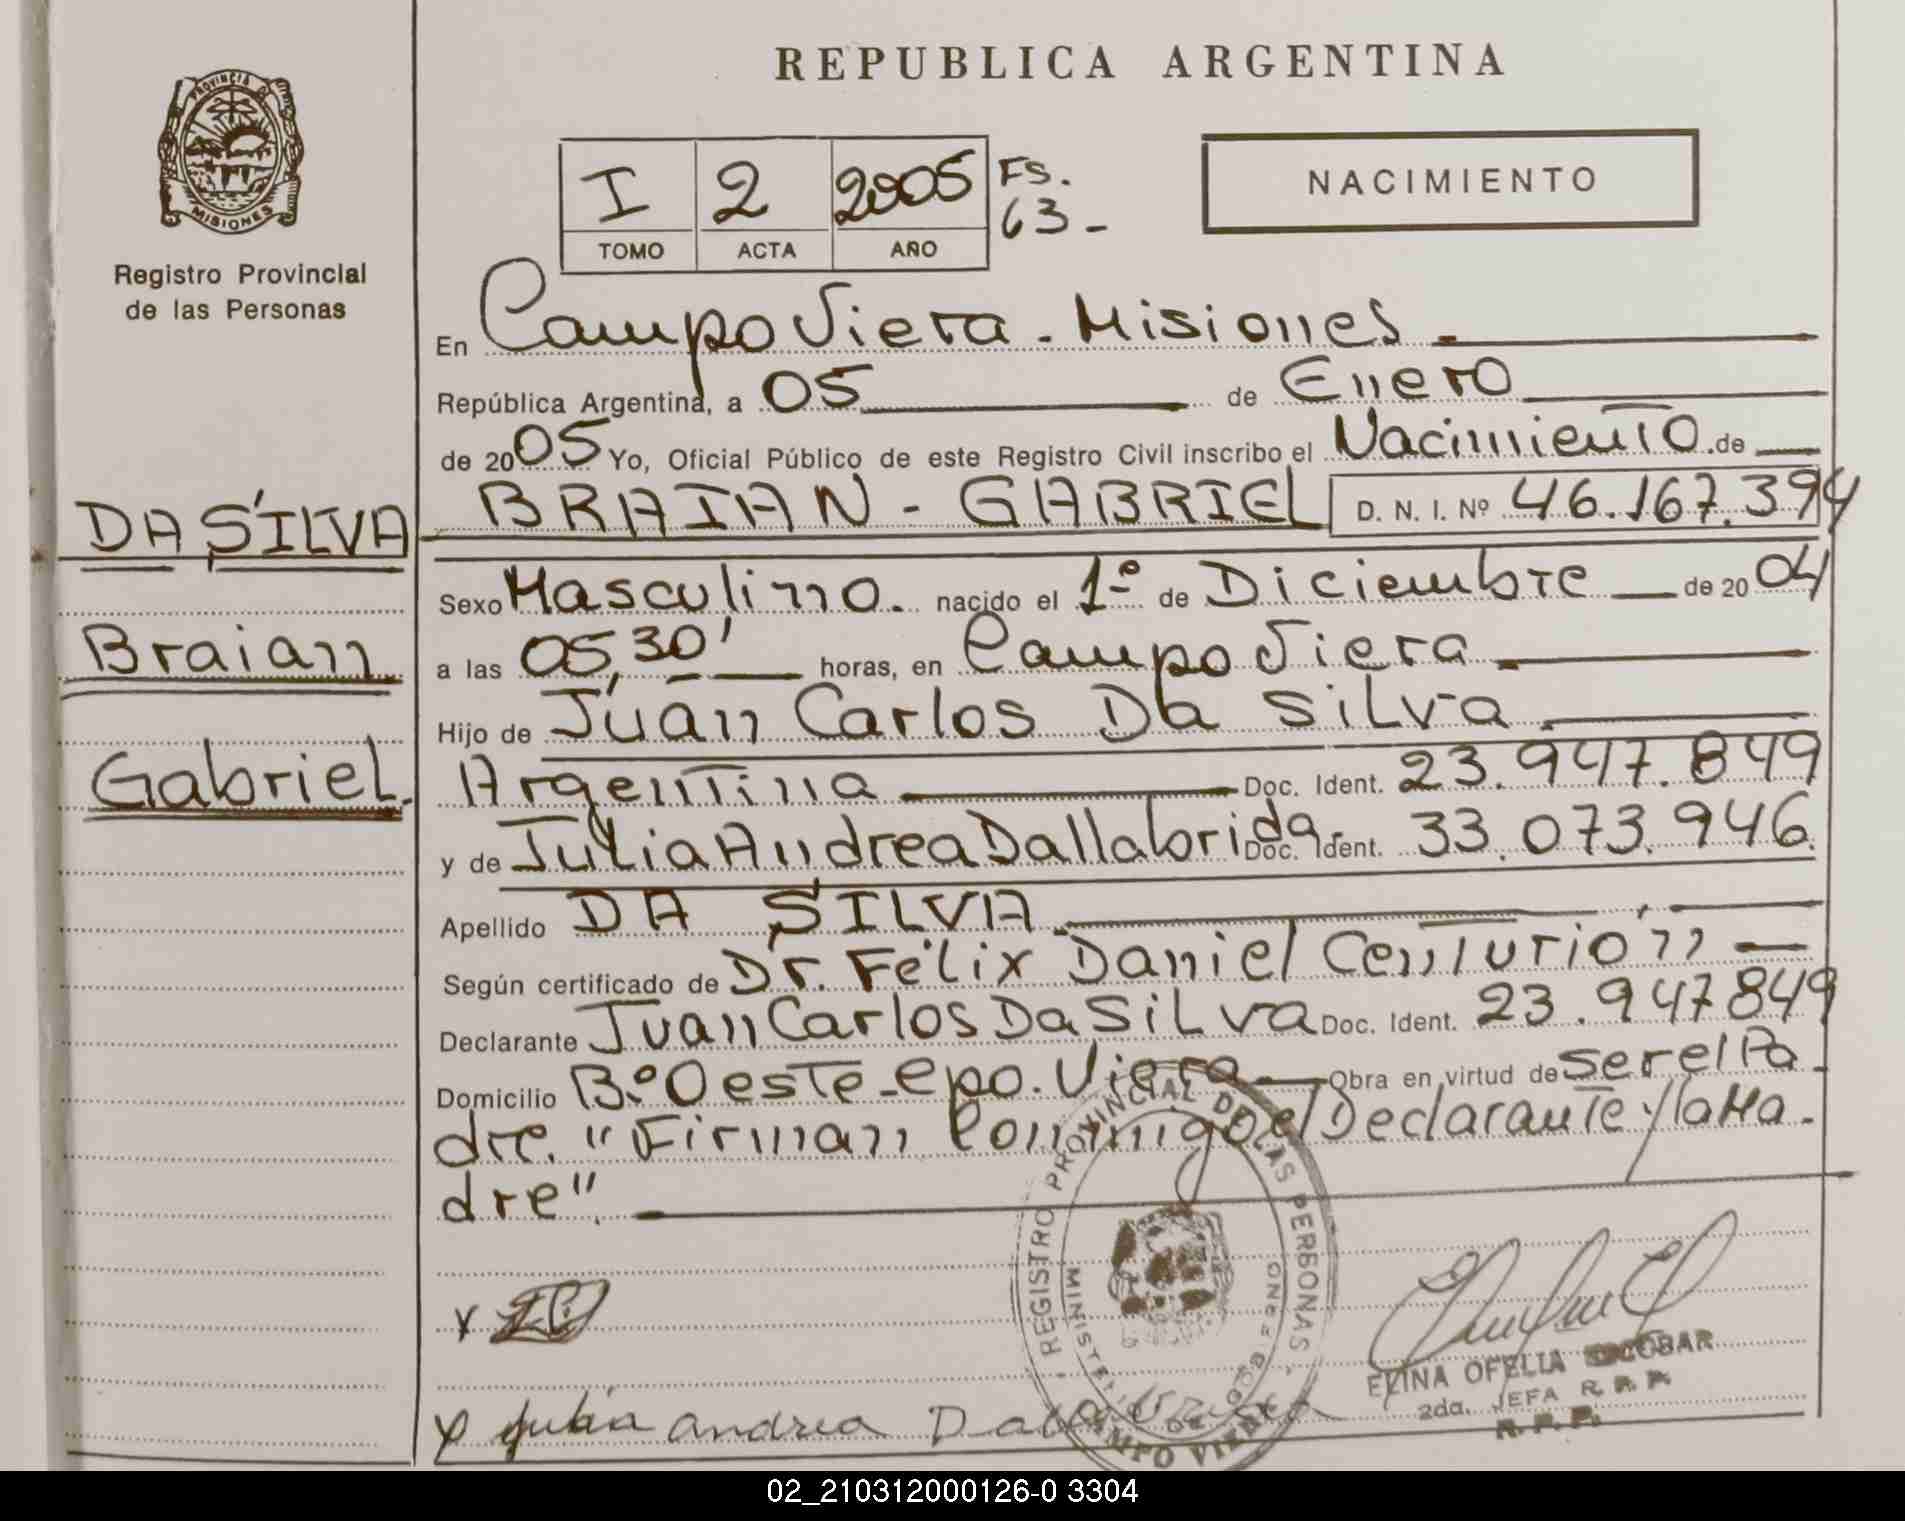 REPUBLICA ARGENTINA
PROVINCIA DE
MISIONES
Registro Provincial
de las Personas
I 2 2005 FS. 63-
TOMO ACTA AÑO
NACIMIENTO
En Campo Viera - Misiones.
República Argentina, a 05 de Enero
de 2005 Yo, Oficial Público de este Registro Civil inscribo el Nacimiento de
DA SILVA
BRAIAN - GABRIEL D. N. I. Nº 46.167.394
Sexo Masculino. nacido el 1º de Diciembre de 2004
Braian
a las 05,30' horas, en Campo Viera
Hijo de Juan Carlos Da SiLva
Gabriel.
Argentina Doc. Ident. 23.947.849
y de Julia Andrea Dallabrida Doc. Ident. 33.073.946.
Apellido DA SILVA
Según certificado de Dr. Felix Daniel Centurion
Declarante Juan Carlos Da SiLva Doc. Ident. 23.947849
Domicilio B.º Oeste - Cpo. Viera Obra en virtud de ser el Pa
dre. "Firman Conmigo el Declarante y la Ma-
dre".
REGISTRO PROVINCIAL DE LAS PERSONAS
CAMPO VIERA
ELINA OFELIA ESCOBAR
2da. JEFA R. P. P.
R. P. P.
x Julia andrea
02_210312000126-0 3304